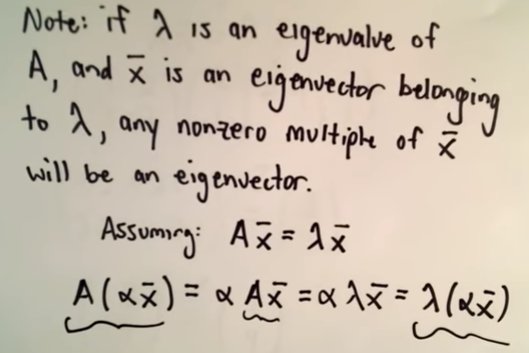 Note: if λ is an eigenvalue of
A, and x̄ is an eigenvector belonging
to λ, any nonzero multiple of x̄
will be an eigenvector.
Assuming: Ax̄ = λx̄
A(αx̄) = αAx̄ = αλx̄ = λ(αx̄)